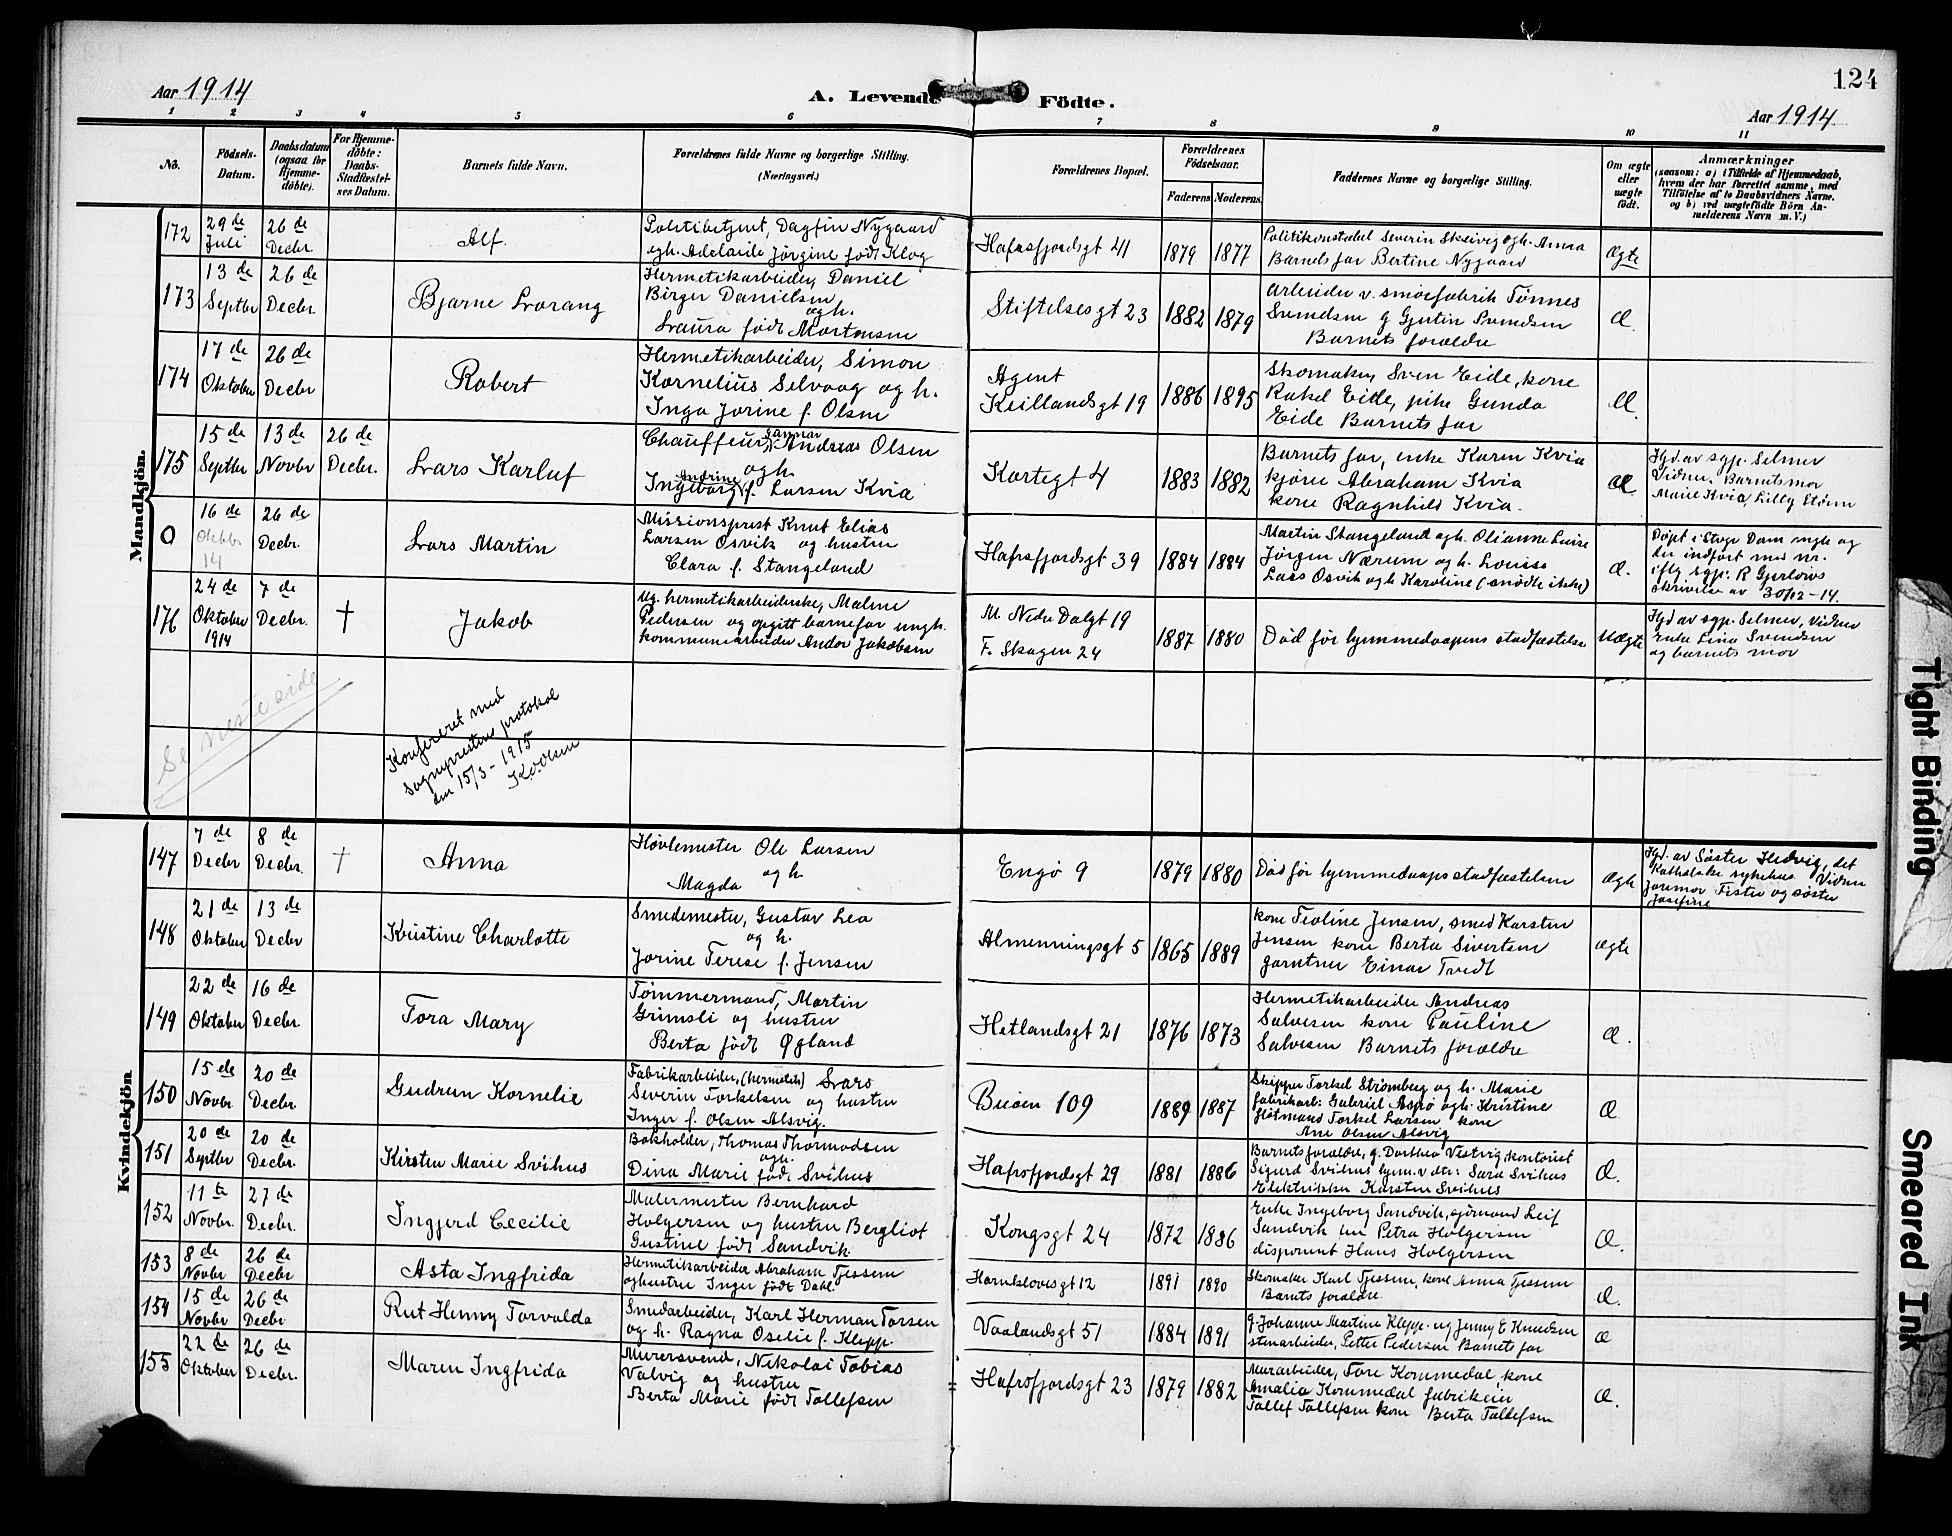 124
Aar 1914
A. Levende Födte.
Aar 1914
1 2 3 4 5 6 7 8 9 10 11
No.
Födsels-
Datum.
Daabsdatum
(ogsaa for
Hjemme-
döbte).
For Hjemme-
döbte:
Daabs-
Stadfæstel-
ses Datum.
Barnets fulde Navn.
Forældrenes fulde Navne og borgerlige Stilling.
(Næringsvei.)
Forældrenes Bopæl.
Forældrenes
Födselsaar.
Faderens
Moderens
Faddernes Navne og borgerlige Stilling.
Om ægte
eller
uægte
födt.
Anmærkninger
(saasom: a) i Tilfælde af Hjemmedaab,
hvem der har forrettet samme, med
Tilföielse af to Daabsvidners Navne,
og b) ved uægtefödte Börn An-
melderens Navn m. V.)
Mandkjön.
172
29 de
Juli
26 de
Decbr.
Alf.
Politibetjent, Dagfin Nygaard
og h. Adelaide Jørgine født Klog
Hafrsfjordsgt 41
1879
1877
Politikonstabel Severin Skeivig og h. Anna
Barnets far Bertine Nygaard
Ægte
173
13 de
Septbr
26 de
Decbr.
Bjarne Lorang
Hermetikarbeider, Daniel
Birger Danielsen
og h.
Laura født Mortensen
Stiftelsesgt 23
1882
1879
Arbeider v. smørfabrik Tønnes
Svendsen g Gjertin Svendsen
Barnets forældre
Æ.
174
17 de
Oktober
26 de
Decbr
Robert
Hermetikarbeider, Simon
Kornelius Selvaag og h.
Inga Jorine f. Olsen
Agent
Kiellandsgt 19
1886
1895
Skomaker Sven Eide, kone
Rakel Eide, pike Gunda
Eide Barnets far
Æ.
175
15 de
Septbr
13 de
Novbr
26 de
Decbr.
Lars Karluf
Chauffeur, Gunnar Andreas Olsen
og h.
Ingeborg Andrine f. Larsen Kvia
Kortegt 4
1883
1882
Barnets far, enke Karen Kvia
kjører Abraham Kvia
kone Ragnhild Kvia.
Æ.
Hjd. av sgp. Selmer
Vidner: Barnets mor
Marie Kvia, Lilly Strøm
0
16 de
Oktbr.
14
26 de
Decbr.
Lars Martin
Missionsprest Knut Elias
Larsen Osvik og hustru
Clara f. Stangeland
Hafrsfjordsgt 39
1884
1884
Martin Stangeland og h. Olianne Luise
Jørgen Nærum og h. Louise
Lars Osvik og h Karoline (-mødte ikke)
Æ.
Døpt i Stvgr Dom megh og
der indført med nr.
iflg sgp. R Gjerløws
skrivelse av 30/12-14.
176
24 de
Oktober
1914
7 de
Decbr.
†
Jakob
Ug. hermetikarbeiderske, Malene
Pedersen og opgitt barnefar ungk.
kommunearbeider Andor Jakobsen
M. Nedre Dalgt 19
F. Skagen 24
1887
1880
Død før hjemmedaapens stadfæstelse
Uægte
Hjd av sgp. Selmer, Vidner
Enke Lina Svendsen
og barnets mor
Se neste side
Konfereret med
sogneprestens protokol
den 15/3-1915
K.O. Olsen
Kvindekjön
147
7 de
Decbr
8 de
Decbr.
†
Anna
Høvlemester Ole Larsen
og h.
Magda
Engø 9
1879
1880
Død før hjemmedaaps stadfæstelsen
Ægte
Hjd. av Søster Hedvig, det
Katholske sykehus. Vidner
Jormor Fister og søster
Josefine
148
21 de
Oktober
13 de
Decbr
Kristine Charlotte
Smedemester, Gustav Lea
og h.
Jorine Terese f. Jensen
Almenningsgt 5
1865
1889
kone Teoline Jensen, smed Karsten
Jensen kone Berta Sivertsen
gartner Einar Tvedt
ægte
149
22 de
Oktober
16 de
Decbr
Tora Mary
Tømmermand, Martin
Grimsli og hustru
Berta født Øgland
Hetlandsgt 21
1876
1873
Hermetikarbeider Andreas
Salvesen kone Pauline
Salvesen Barnets forældre
Æ.
150
15 de
Novbr
20 de
Decbr.
Gudrun Kornelie
Fabrikarbeider, (hermetik) Lars
Severin Torkelsen og hustru
Inger f. Olsen Alsvig.
Buøen 109
1889
1887
Skipper Torkel Strømberg og h. Marie
fabrikarb: Gabriel Aspø og h. Kristine
Flotmand Torkel Larsen kone
Ane Olsen Alsvig
Æ.
151
20 de
Septbr
20 de
Decbr.
Kirsten Marie Svihus
Bokholder, Thomas Thormodsen
og h.
Dina Marie født Svihus
Hafrsfjordsgt 29
1881
1886
Barnets forældre, g. Dorthea Vestvig, kontorist
Sigurd Svihus hjem.v. dtr: Sara Svihus
Elektriker Karsten Svihus
Æ.
152
11 te
Novbr.
27 de
Decbr.
Ingjerd Cecilie
Malermester Bernhard
Holgersen og hustru Bergliot
Gustine født Sandvik
Kongsgt 24
1872
1886
Enke Ingeborg Sandvik, sjømand Leif
Sandvik fru Petra Holgersen
disponent Hans Holgersen
Æ.
153
8 de
Novbr
26 de
Decbr
Asta Ingfrida
Hermetikarbeider Abraham Tjessem
og hustru Inger født Dahl.
Harniklovesgt 12
1891
1890
Skomaker Karl Tjessem, kone Anna Tjessem
Barnets forældre
Æ.
154
15 de
Novbr
26 de
Decbr
Rut Henny Torvalda
Smedarbeider, Karl Herman Torsen
og h. Ragna Oselie f. Klepp.
Vaalandsgt 51
1884
1891
g. Johanne Martine Klepp. ug Jenny E Knudsen
stenarbeider, Petter Pedersen Barnets far
Æ
155
22 de
Oktober
26 de
Decbr.
Maren Ingfrida
Murersvend, Nikolai Tobias
Valvig og hustru
Berta Marie født Tollefsen
Hafrsfjordsgt 23
1879
1882
Murarbeider, Tore Kommedal kone
Amalia Kommedal fabrikeier
Tollef Tollefsen kone Berta Tollefsen
Æ.
Tight Binding
Smeared Ink